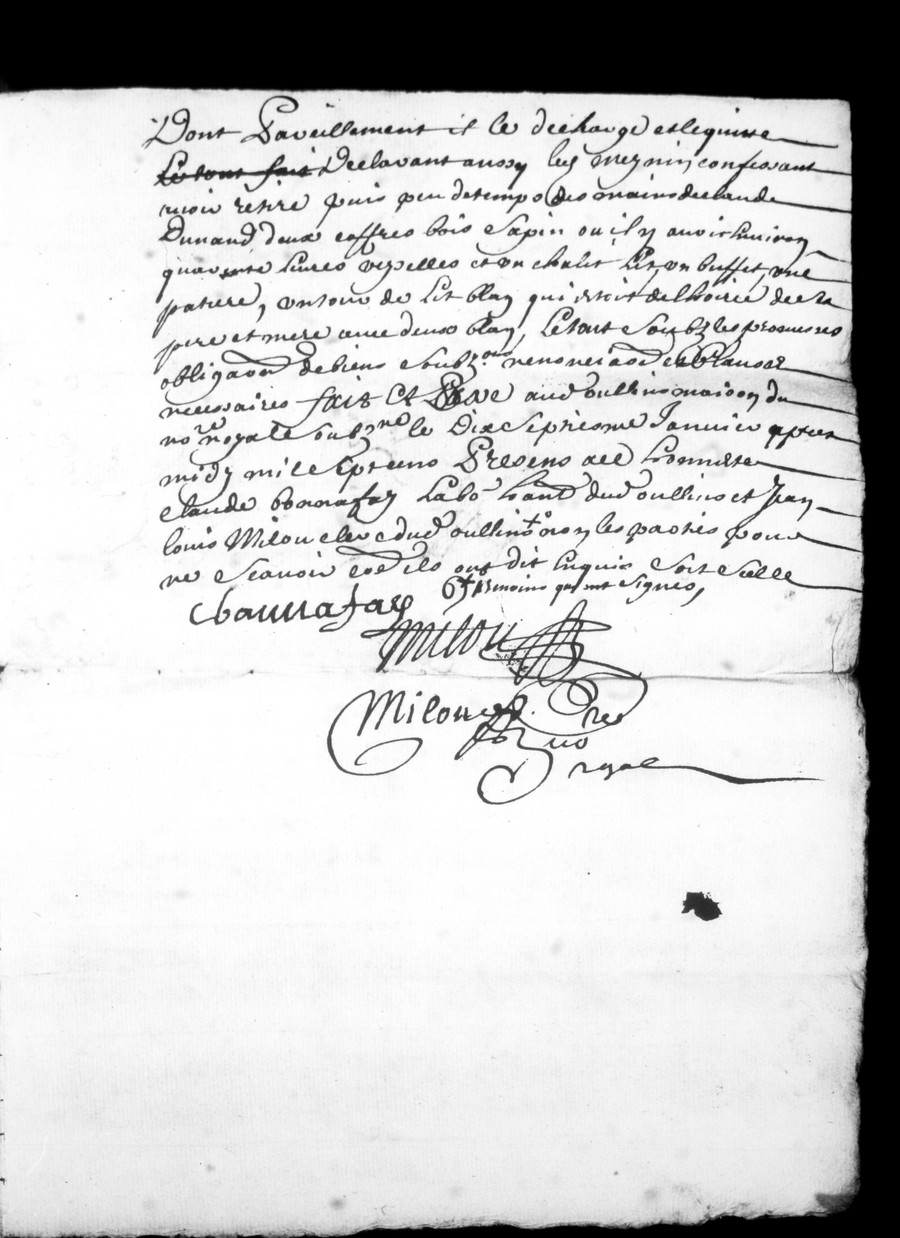 Dont Pareillement il le décharge et le quitte
Le tout fait Declarant aussy les mesmes confessant
avoir retiré puis peu de temps des mains de claude
Dunand deux coffres bois sapin ou il y avoit Environ
quarente livres vesselles et un chalit Lit, un buffet, une
patiere, un tour de Lit blan qui estoit de lhoirie de
pere et mere avec deux blan, Letout soubz les promesses
obliga͠on de biens soubz͠ons renoncia͠on et Clauses
necessaires fait Et Passé aud oullins maison du
no͠re royal soub͠ne le Dix septiesme Janvier apres
midy mil sept cens Presens a ce honneste
claude bonnafay Labo͠ hant dud oullins et Jean
louis Milou clerc dud oullins + non les parties pour
ne scavoir co͠e ils ont dit Enquis soit scellé
+ temoins qui ont signés,
cbaunafay
Milou
Milou
no͠re
royal